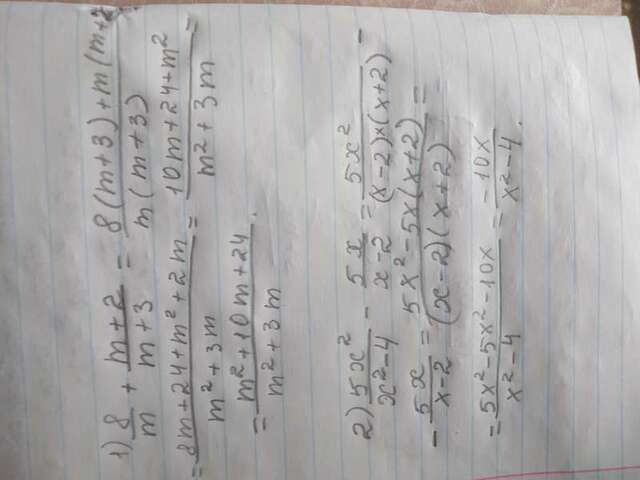 1) 8/m + m+2/m+3 = 8(m+3)+m(m+2/m(m+3)
= 8m+24+m²+2m/m²+3m = 10m+24+m²/m²+3m =
= m²+10m+24/m²+3m.
2) 5x²/x²-4 - 5x/x-2 = 5x²/(x-2)×(x+2) -
- 5x/x-2 = 5x²-5x(x+2)/(x-2)(x+2) =
= 5x²-5x²-10x/x²-4 = -10x/x²-4.